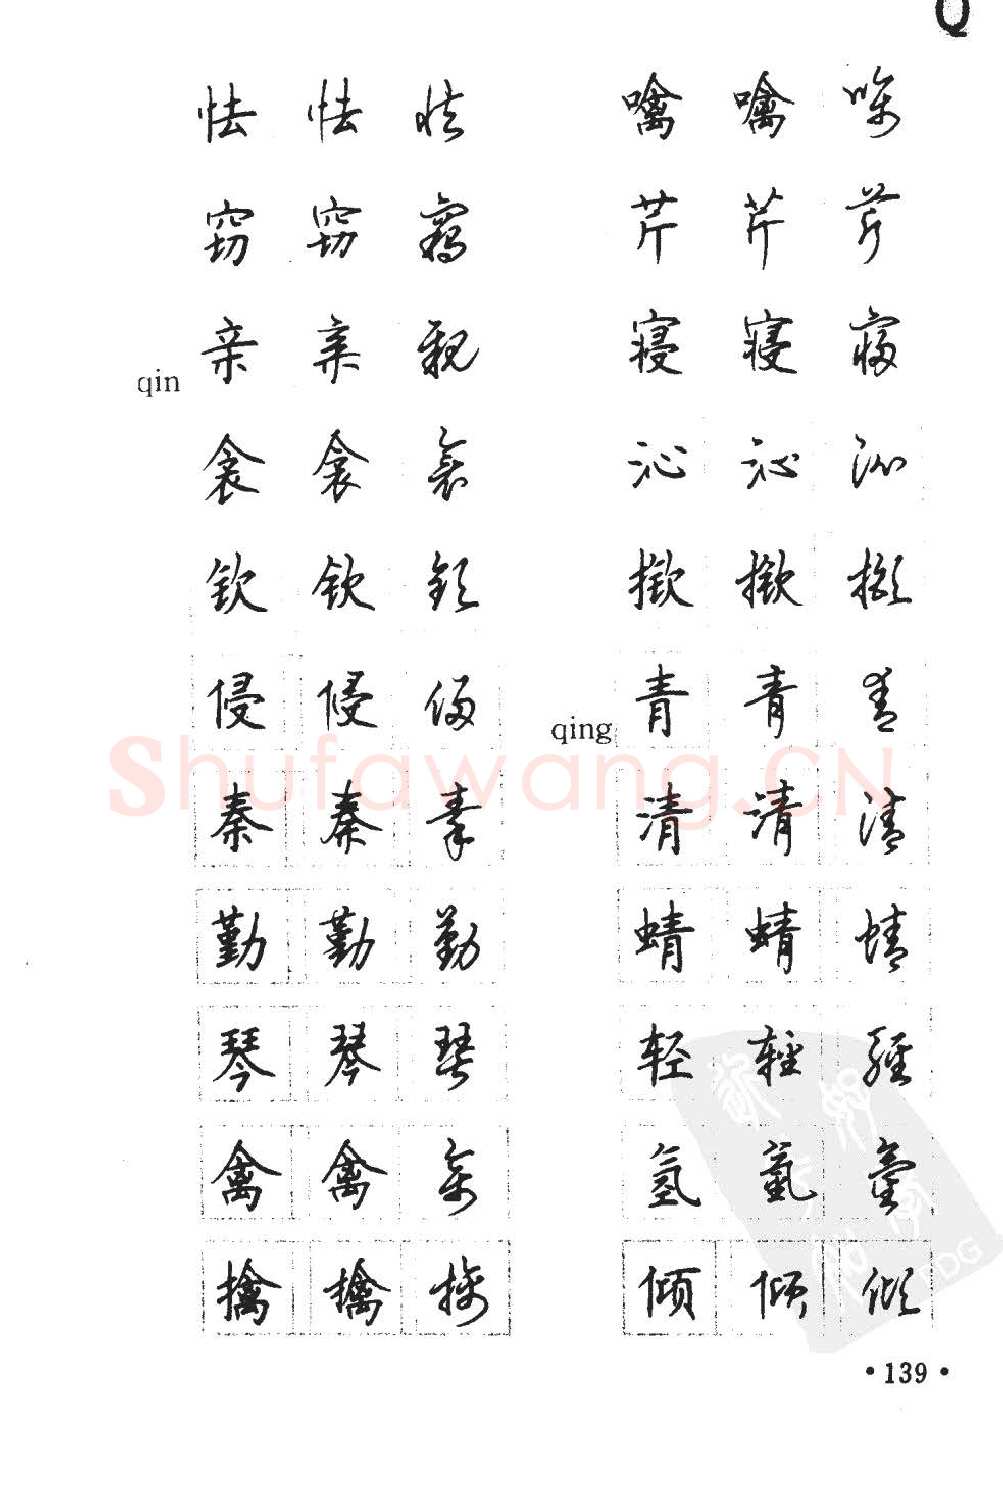 Q
怯 怯 怯
窃 窃 竊
qin 亲 亲 親
衾 衾 衾
钦 钦 钦
侵 侵 侵
秦 秦 秦
勤 勤 勤
琴 琴 琴
禽 禽 禽
擒 擒 擒
噙 噙 噙
芹 芹 芹
寝 寝 寝
沁 沁 沁
揿 揿 揿
qing 青 青 青
清 清 清
蜻 蜻 蜻
轻 轻 輕
氢 氢 氢
倾 倾 倾
·139·
Shufawang.CN